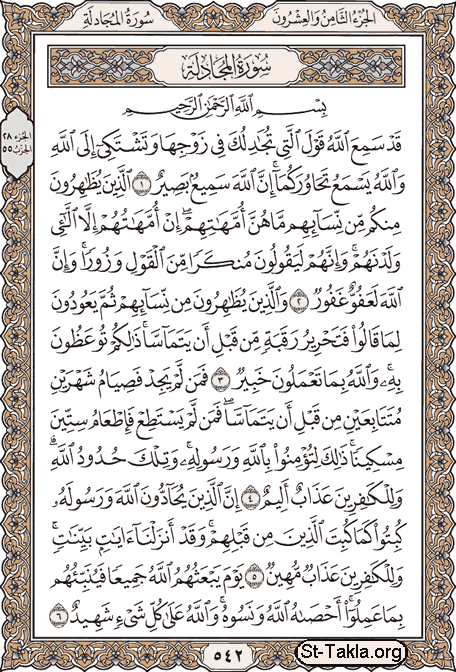 الجزء الثامن والعشرون
سورة المجادلة
سُورَةُ المُجَادلَةِ
بِسْمِ اللَّهِ الرَّحْمَٰنِ الرَّحِيمِ
الجزء ٢٨
الحزب ٥٥
قَدْ سَمِعَ ٱللَّهُ قَوْلَ ٱلَّتِى تُجَٰدِلُكَ فِى زَوْجِهَا وَتَشْتَكِىٓ إِلَى ٱللَّهِ
وَٱللَّهُ يَسْمَعُ تَحَاوُرَكُمَآ ۚ إِنَّ ٱللَّهَ سَمِيعٌۢ بَصِيرٌ ١ ٱلَّذِينَ يُظَٰهِرُونَ
مِنكُم مِّن نِّسَآئِهِم مَّا هُنَّ أُمَّهَٰتِهِمْ ۖ إِنْ أُمَّهَٰتُهُمْ إِلَّا ٱلَّٰٓـِٔى
وَلَدْنَهُمْ ۚ وَإِنَّهُمْ لَيَقُولُونَ مُنكَرًا مِّنَ ٱلْقَوْلِ وَزُورًا ۚ وَإِنَّ
ٱللَّهَ لَعَفُوٌّ غَفُورٌ ٢ وَٱلَّذِينَ يُظَٰهِرُونَ مِن نِّسَآئِهِمْ ثُمَّ يَعُودُونَ
لِمَا قَالُوا۟ فَتَحْرِيرُ رَقَبَةٍ مِّن قَبْلِ أَن يَتَمَآسَّا ۚ ذَٰلِكُمْ تُوعَظُونَ
بِهِۦ ۚ وَٱللَّهُ بِمَا تَعْمَلُونَ خَبِيرٌ ٣ فَمَن لَّمْ يَجِدْ فَصِيَامُ شَهْرَيْنِ
مُتَتَابِعَيْنِ مِن قَبْلِ أَن يَتَمَآسَّا ۖ فَمَن لَّمْ يَسْتَطِعْ فَإِطْعَامُ سِتِّينَ
مِسْكِينًا ۚ ذَٰلِكَ لِتُؤْمِنُوا۟ بِٱللَّهِ وَرَسُولِهِۦ ۚ وَتِلْكَ حُدُودُ ٱللَّهِ ۗ
وَلِلْكَٰفِرِينَ عَذَابٌ أَلِيمٌ ٤ إِنَّ ٱلَّذِينَ يُحَآدُّونَ ٱللَّهَ وَرَسُولَهُۥ
كُبِتُوا۟ كَمَا كُبِتَ ٱلَّذِينَ مِن قَبْلِهِمْ ۚ وَقَدْ أَنزَلْنَآ ءَايَٰتٍۭ بَيِّنَٰتٍ ۚ
وَلِلْكَٰفِرِينَ عَذَابٌ مُّهِينٌ ٥ يَوْمَ يَبْعَثُهُمُ ٱللَّهُ جَمِيعًا فَيُنَبِّئُهُم
بِمَا عَمِلُوٓا۟ ۚ أَحْصَىٰهُ ٱللَّهُ وَنَسُوهُ ۚ وَٱللَّهُ عَلَىٰ كُلِّ شَىْءٍ شَهِيدٌ ٦
٥٤٢
St-Takla.org